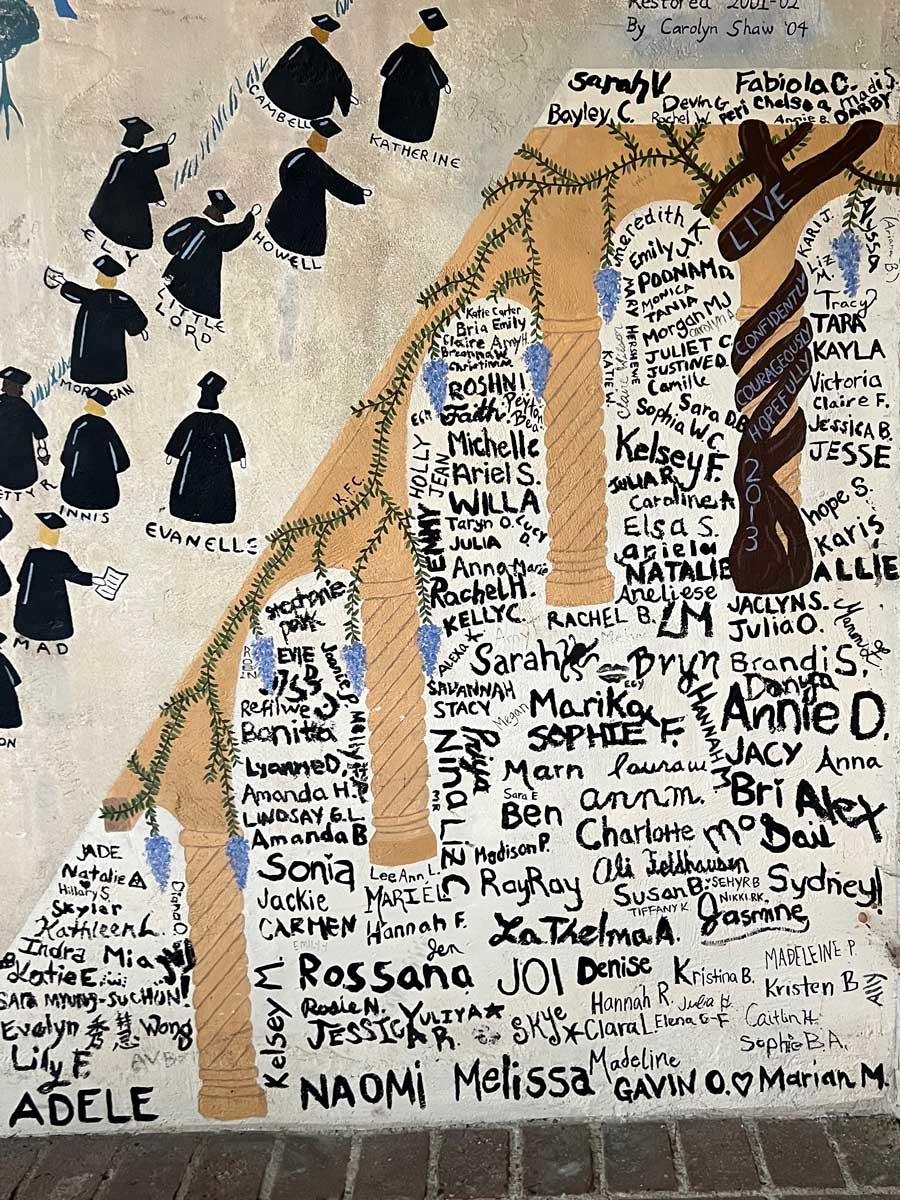 Restored 2001-02
By Carolyn Shaw '04
CAMBELL
KATHERINE
ELY
HOWELL
LITTLE
LORD
MORGAN
ETTY R.
INNIS
EVANELLE
MAD
ON
Sarah V
Fabiola C.
Madi S.
Bayley C.
Devin G
Rachel W.
Peri
Chelsea
Annie B.
DARBY
LIVE
CONFIDENTLY
COURAGEOUSLY
HOPEFULLY
2013
meredith K
Emily J.
POONAM D
MARY HERSHEWE
MONICA
TANIA
Morgan MJ
Carolyn A
JULIET C
JUSTINE D.
Camille
KATIE W.
Sara D.B
Sophia W C
Kelsey F.
JULIA R.
Caroline A
Elsa S.
ariela
NATALIE
Aneliese
KARI J.
Alyssa
Liz
M.
Tracy
TARA
KAYLA
Victoria
Claire F.
JESSICA B.
JESSE
hope S.
Karis
ALLIE
Katie Carter
Bria Emily
Claire Amy H.
Breanna W
Christina
ROSHNI
Faith
Peyton
Bea
Michelle
HOLLY
JEAN
Ariel S.
WILLA
Taryn O.
Lucy
D.
JULIA
EMMY
Anna-Marie
Rachel H.
KELLY C.
K.F.C
RACHEL B.
LM
JACLYN S.
Julia O.
Stephanie
park
ROBIN
EVIE
D
Jeannie P.
Refilwe
Bonita
Molly
Lyanne D.
Amanda H.
LINDSAY G.L.
Amanda B
ALEXA
Sarah
Bryn
Brandi S.
Danya
SAVANNAH
STACY
Megan
Marika
HANNAH M
Annie D.
SOPHIE F.
Priya
NINA LIZ C
Marn
laurau
JACY
Anna
Sara E
Ben
ann m.
Bri
Alex
Charlotte
Mo
Dail
Madison P.
Ali Feldhausen
Sonia
Lee Ann L.
MARIEL
RayRay
Susan B.
SEHYR B
NIKKI RK.
Sydney!
TIFFANY K
Jasmne
Jackie
CARMEN
Hannah F.
LaThelma A.
EMILY
Jen
JADE
Natalie A
Hillary S.
Skyler
Diana O
Kathleen L.
Indra
Mia
Katie E.
SARA MYUNG-SU CHUN!
Evelyn 秀慧 Wong
Lily F.
AVB
ADELE
Kelsey M.
Rossana
JOI
Denise
Kristina B.
MADELEINE P.
Kristen B
Amy
Rosie N.
YULIYA
JESSICA R.
Skye
Clara L
Hannah R.
Julia H
Elena G-F
Caitlin H.
Sophie B.A.
NAOMI
Melissa
Madeline
GAVIN O.
Marian M.